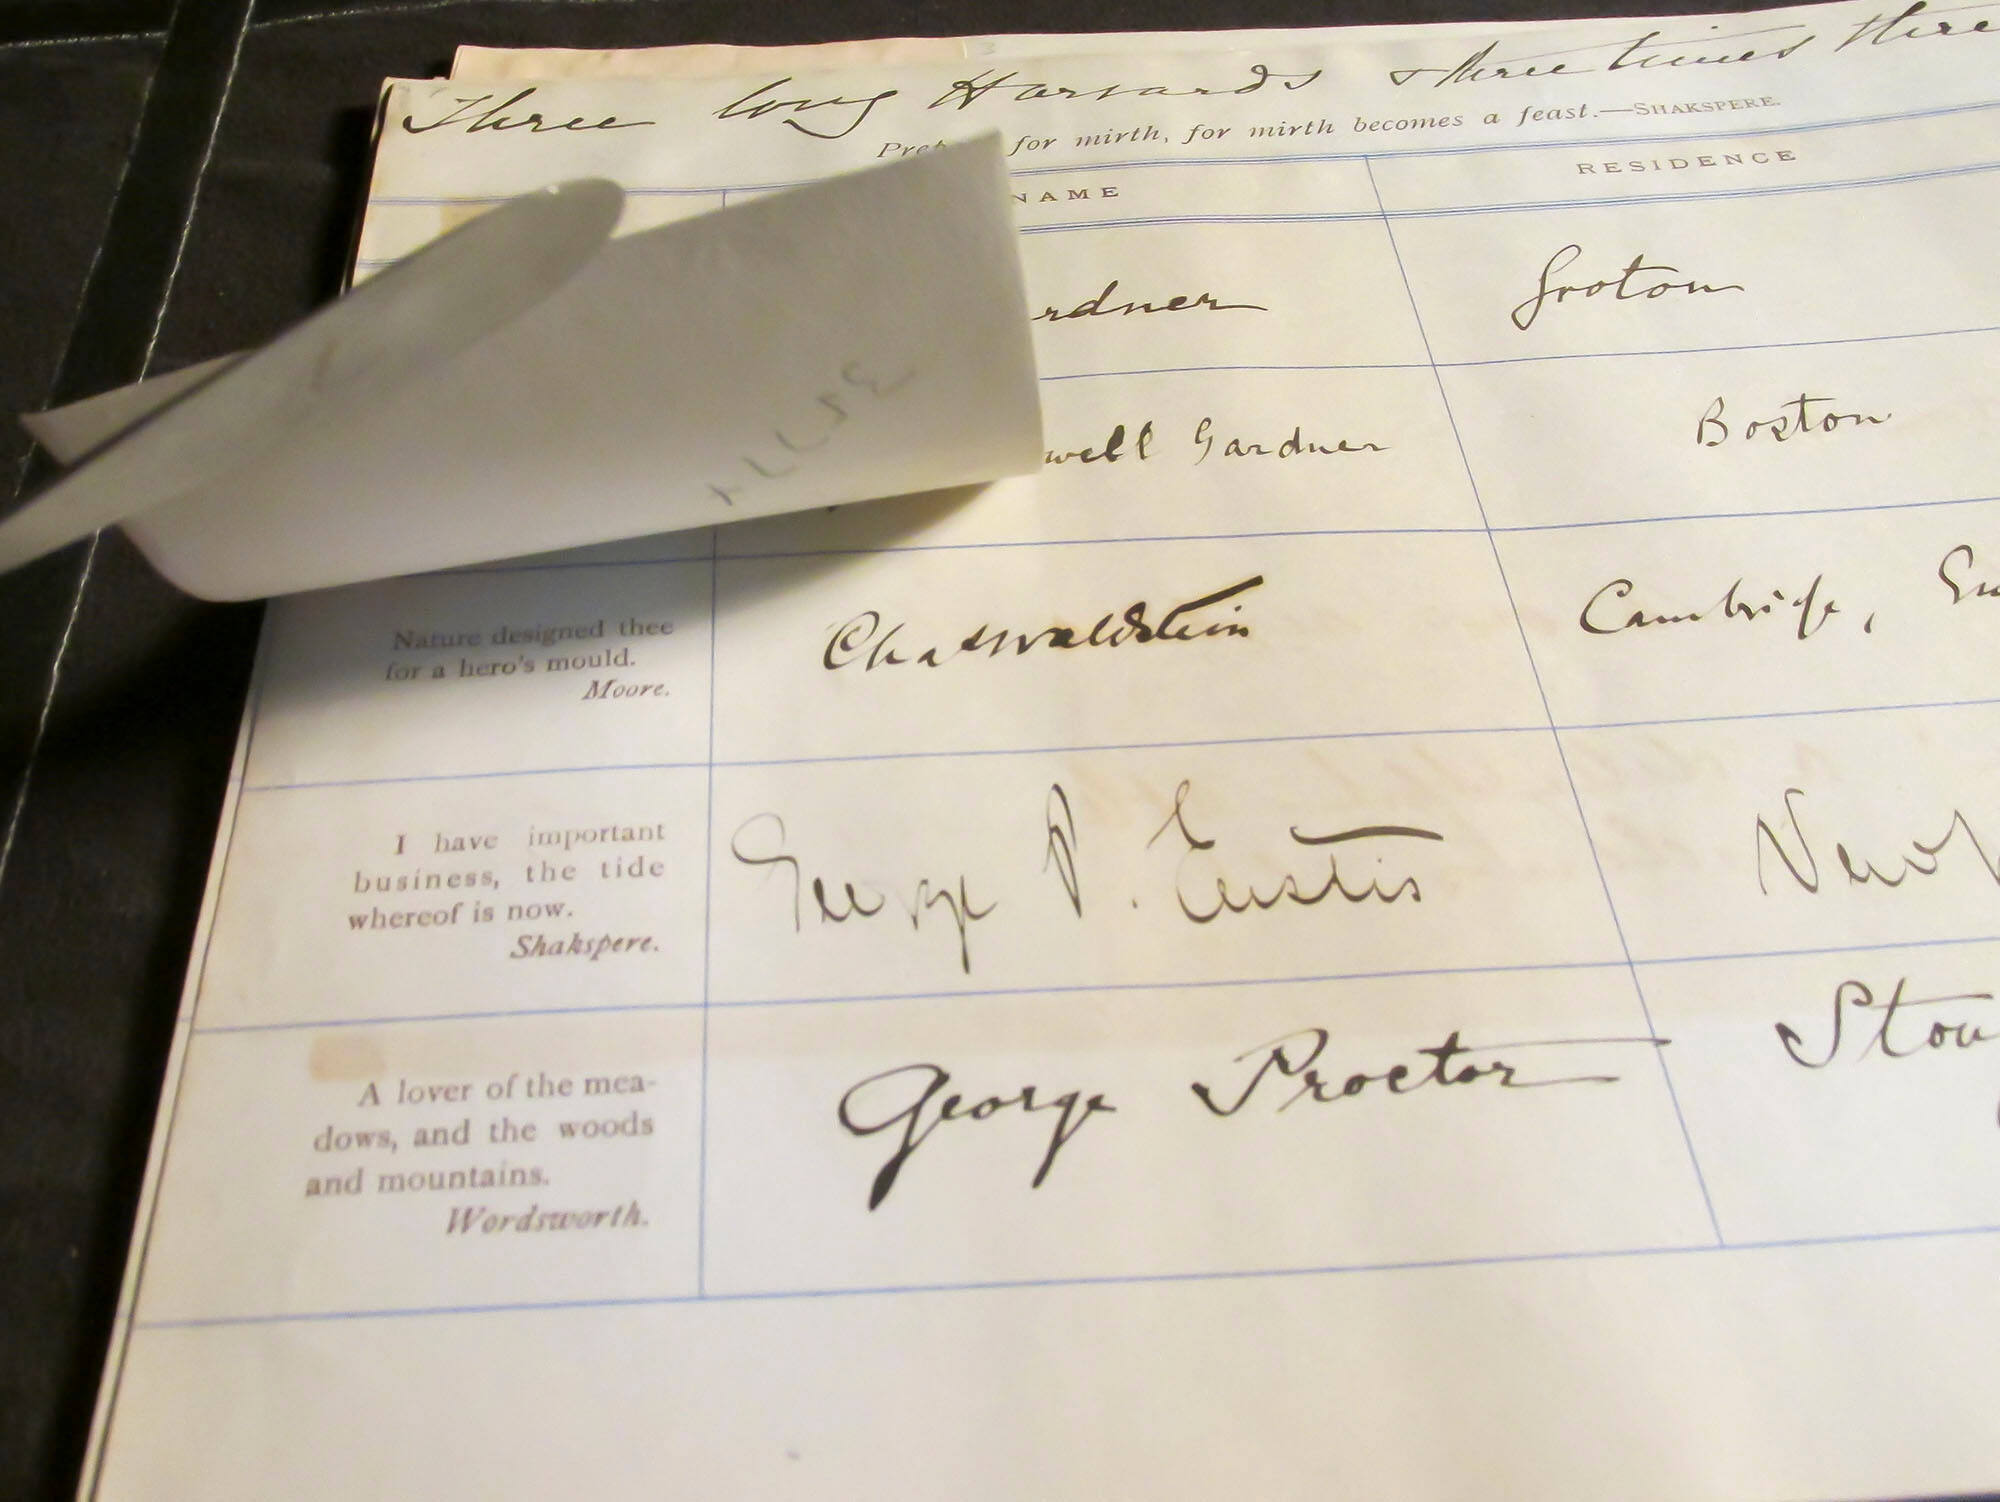 Three long Harvards & three times three
for mirth, for mirth becomes a feast.—SHAKSPERE.
NAME RESIDENCE
rdner Groton
well Gardner Boston
3577
Nature designed thee
for a hero's mould.
Moore.
Chas Waldstein Cambridge,
I have important
business, the tide
whereof is now.
Shakspere.
George P. Eustis Newp
A lover of the mea-
dows, and the woods
and mountains.
Wordsworth.
George Proctor Ston